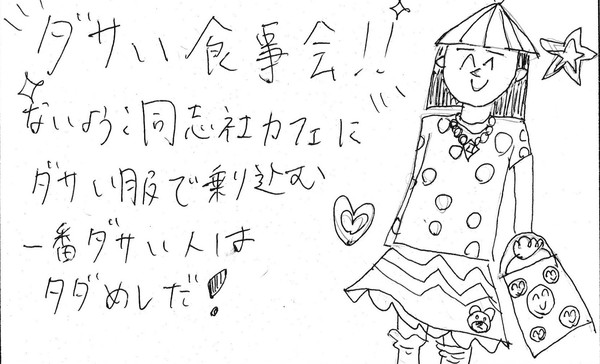 ダサい食事会!!
ないよう：同志社カフェに
ダサい服で乗り込む
一番ダサい人は
タダめしだ！